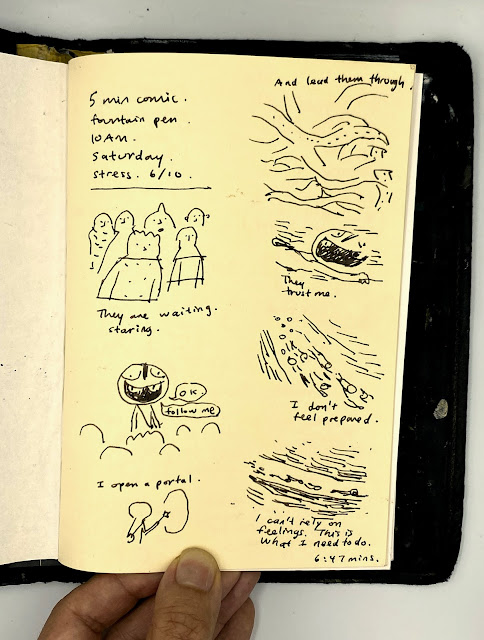 5 min comic.
fountain pen.
10 AM.
Saturday.
stress. 6/10.
They are waiting.
staring.
OK.
follow me
I open a portal.
And lead them through.
They
trust me.
I don't
feel prepared.
I can't rely on
feelings. This is
what I need to do.
6:47 mins.